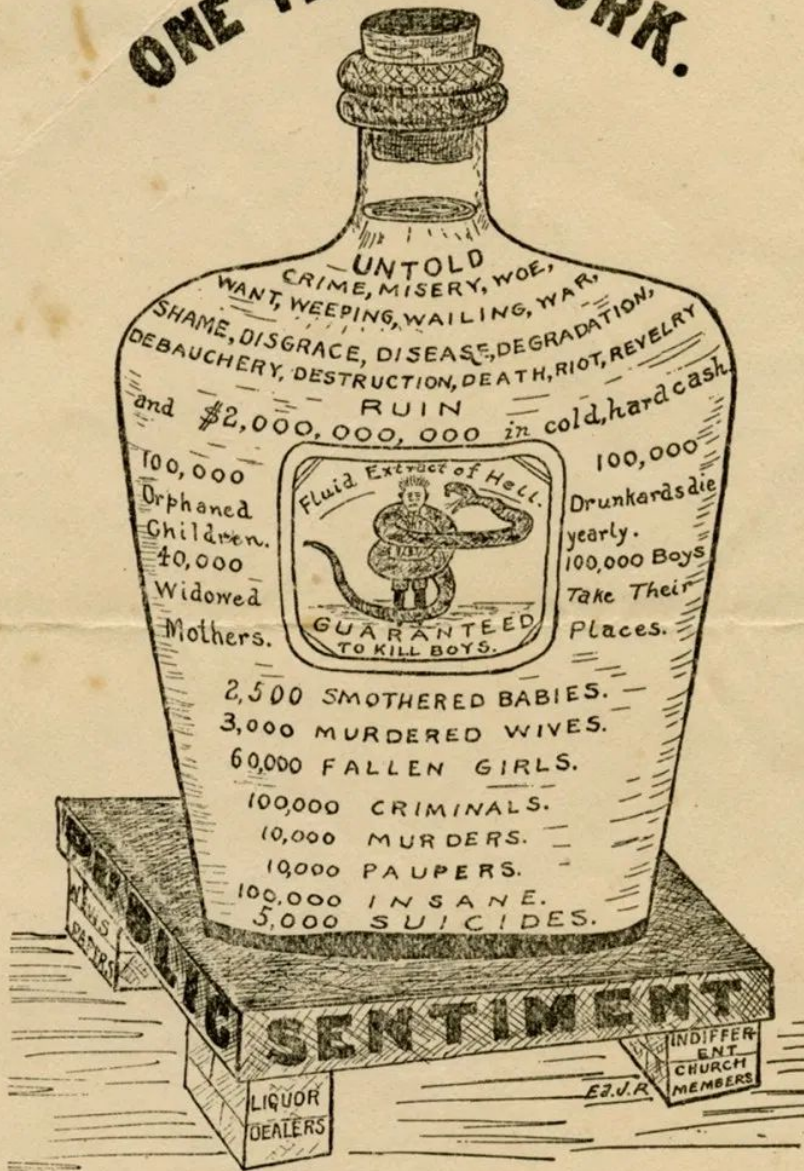 ONE
ORK.
UNTOLD
CRIME, MISERY, WOE,
WANT, WEEPING, WAILING, WAR,
SHAME, DISGRACE, DISEASE, DEGRADATION,
DEBAUCHERY, DESTRUCTION, DEATH, RIOT, REVELRY
RUIN
and $2,000,000,000 in cold, hard cash
100,000
Orphaned
Children.
40,000
Widowed
Mothers.
Fluid Extract of Hell.
GUARANTEED
TO KILL BOYS.
100,000
Drunkards die
yearly.
100,000 Boys
Take Their
Places.
2,500 SMOTHERED BABIES.
3,000 MURDERED WIVES.
60,000 FALLEN GIRLS.
100,000 CRIMINALS.
10,000 MURDERS.
10,000 PAUPERS.
100,000 INSANE.
5,000 SUICIDES.
PUBLIC SENTIMENT
NEWS
PAPERS
LIQUOR
DEALERS
INDIFFER-
ENT
CHURCH
MEMBERS
Ed.J.R